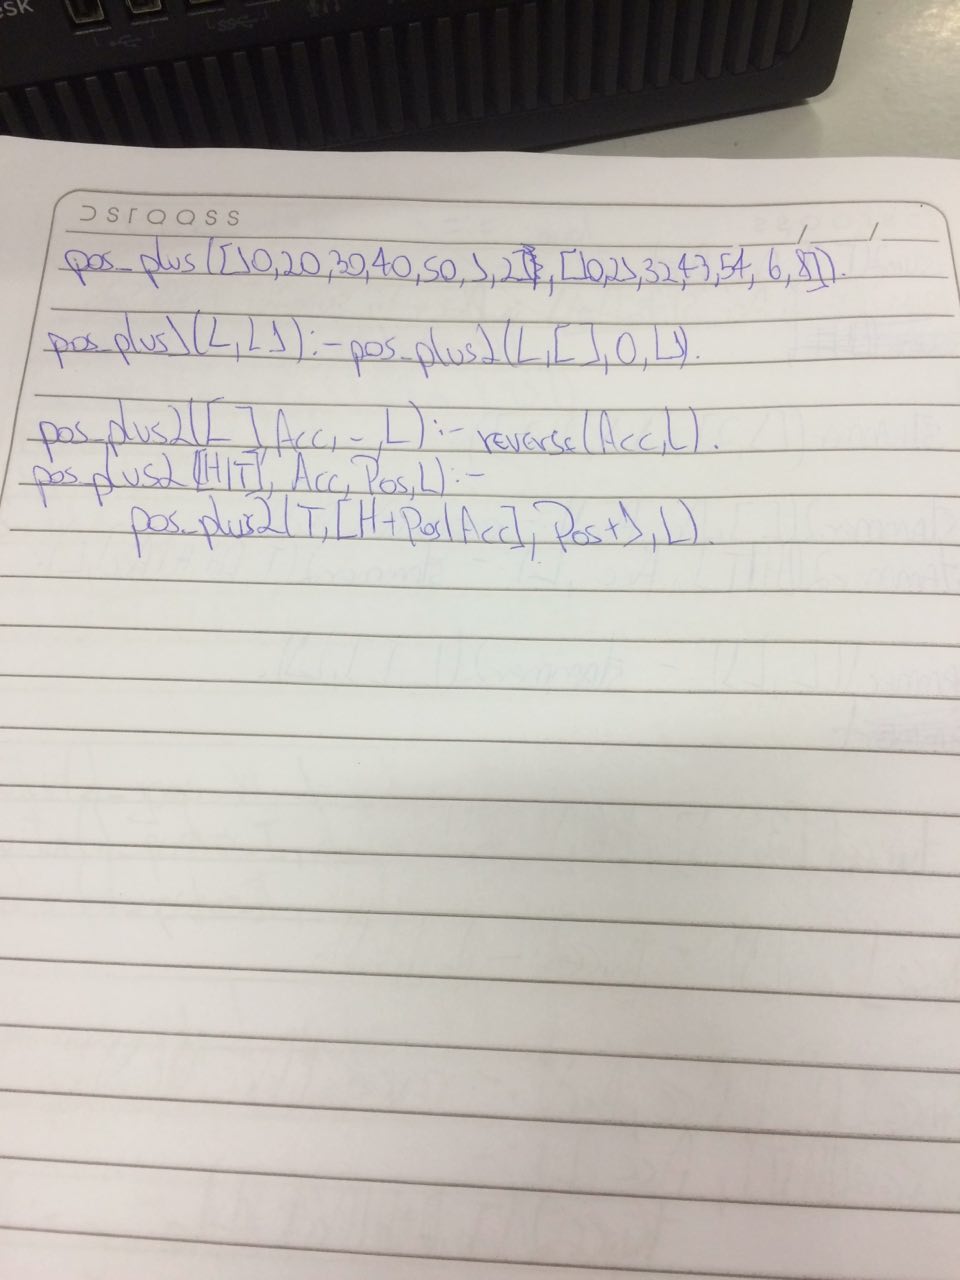 esk
D S T Q Q S S
/ /
pos_plus([10,20,30,40,50,1,2],[10,21,32,43,54,6,8]).
pos_plus1(L,L1):-pos_plus2(L,[],0,L1).
pos_plus2([],Acc,_,L):-reverse(Acc,L).
pos_plus2([H|T],Acc,Pos,L):-
pos_plus2(T,[H+Pos|Acc],Pos+1,L).